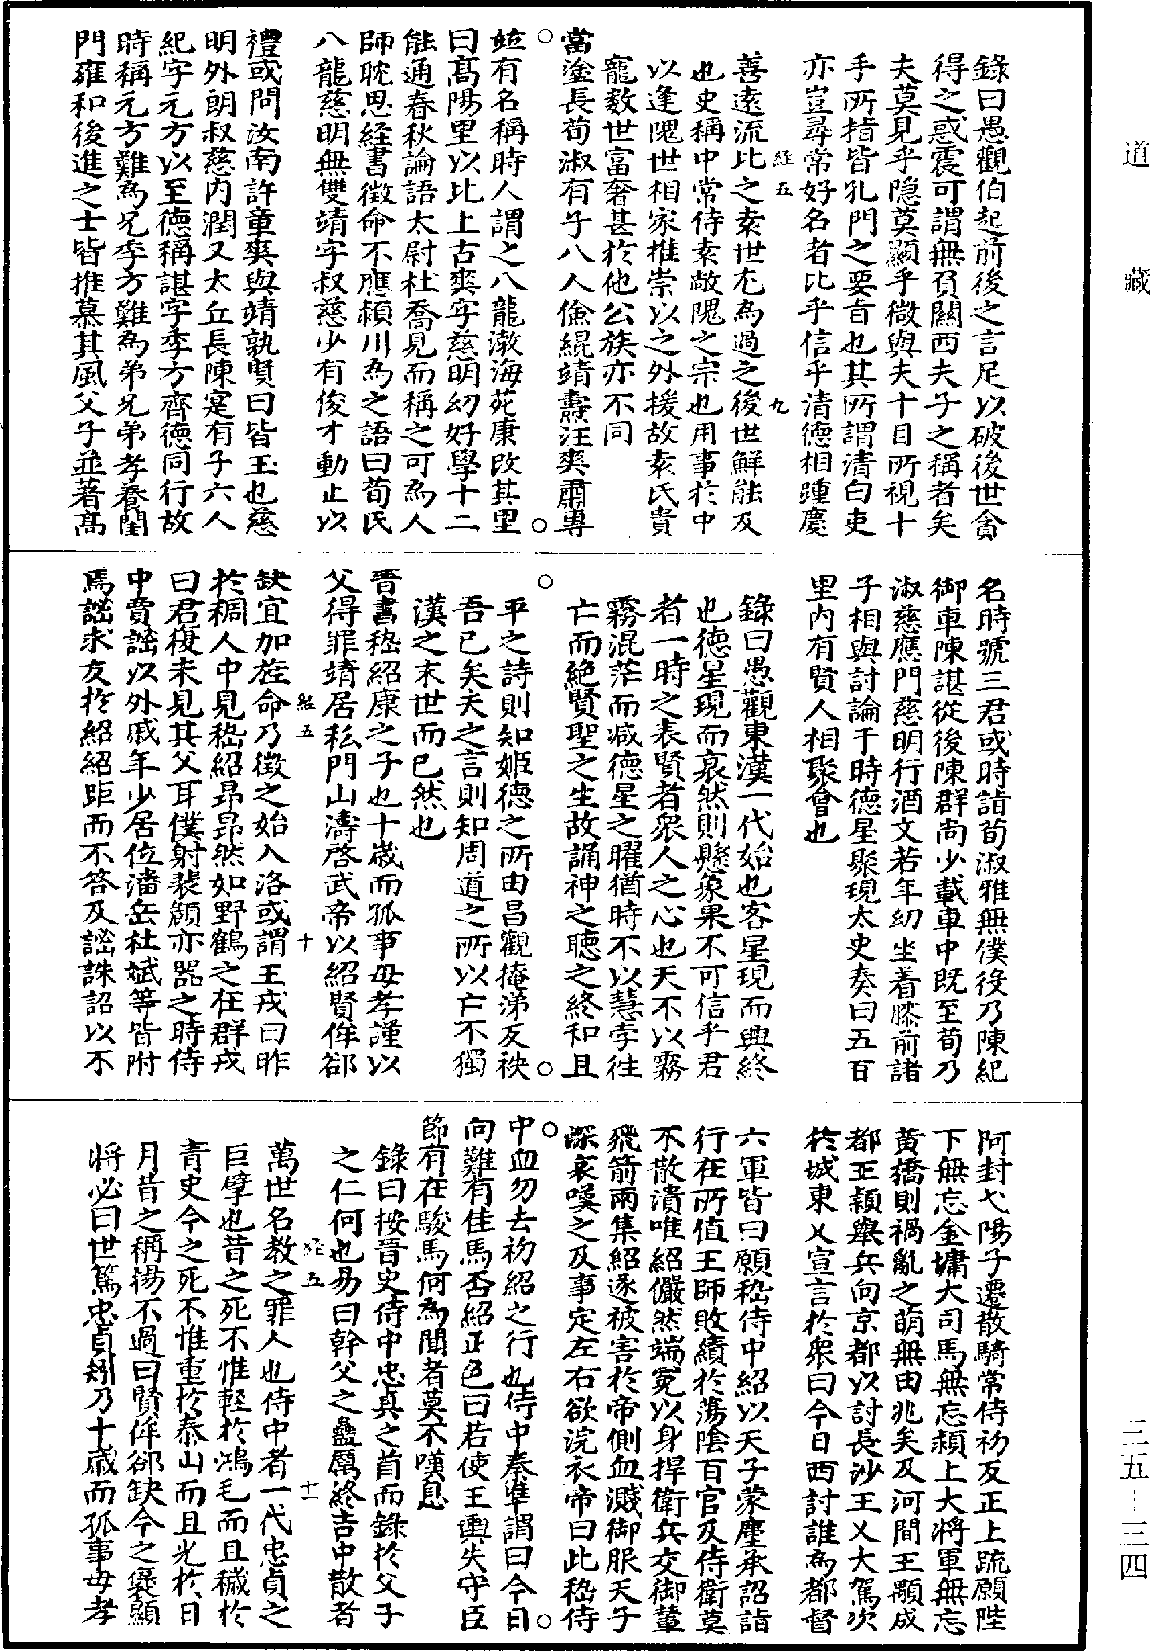 道藏
錄曰愚觀伯起前後之言足以破後世貪
得之惑震可謂無負關西夫子之稱者矣
夫莫見乎隱莫顯乎微與夫十目所視十
手所指皆孔門之要旨也其所謂清白吏
亦豈尋常好名者比乎信乎清德相踵慶
善遠流比之袁世尤為過之後世鮮能及
也史稱中常侍袁敞隗之宗也用事於中
以逢隗世相家推崇以之外援故袁氏貴
寵數世富奢甚於他公族亦不同
當塗長荀淑有子八人儉緄靖燾汪爽肅專
並有名稱時人謂之八龍渤海苑康改其里
曰高陽里以比上古爽字慈明幼好學十二
能通春秋論語太尉杜喬見而稱之可為人
師耽思經書徵命不應潁川為之語曰荀氏
八龍慈明無雙靖字叔慈少有俊才動止以
禮或問汝南許章爽與靖孰賢曰皆玉也慈
明外朗叔慈內潤又太丘長陳寔有子六人
紀字元方以至德稱諶字季方齊德同行故
時稱元方難為兄季方難為弟兄弟孝養閨
門雍和後進之士皆推慕其風父子並著高
經五
九
名時號三君或時詣荀淑雅無僕役乃陳紀
御車陳諶從後陳群尚少載車中既至荀乃
淑慈應門慈明行酒文若年幼坐着膝前諸
子相與討論于時德星聚現太史奏曰五百
里內有賢人相聚會也
錄曰愚觀東漢一代始也客星現而興終
也德星現而哀然則懸象果不可信乎君
者一時之表賢者衆人之心也天不以霧
霧混茫而減德星之曜猶時不以慧孛徃
亡而絕賢聖之生故誦神之聽之終和且
平之詩則知姬德之所由昌觀掩涕反袂
吾已矣夫之言則知周道之所以亡不獨
漢之末世而已然也
晉書嵇紹康之子也十歲而孤事母孝謹以
父得罪靖居私門山濤啓武帝以紹賢侔郤
缺宜加旌命乃徵之始入洛或謂王戎曰昨
於稠人中見嵇紹昂昂然如野鶴之在群戎
曰君復未見其父耳僕射裴頠亦器之時侍
中賈謐以外戚年少居位潘岳杜斌等皆附
焉謐求友於紹紹距而不答及謐誅詔以不
經五
十
阿封弋陽子遷散騎常侍初反正上疏願陛
下無忘金墉大司馬無忘潁上大將軍無忘
黃橋則禍亂之萌無由兆矣及河間王顒成
都王穎舉兵向京都以討長沙王乂大駕次
於城東乂宣言於衆曰今日西討誰為都督
六軍皆曰願嵇侍中紹以天子蒙塵承詔詣
行在所值王師敗績於蕩陰百官及侍衛莫
不散潰唯紹儼然端冕以身捍衛兵交御輦
飛箭雨集紹遂被害於帝側血濺御服天子
深哀嘆之及事定左右欲浣衣帝曰此嵇侍
中血勿去初紹之行也侍中秦準謂曰今日
向難有佳馬否紹正色曰若使王輿失守臣
節有在駿馬何為聞者莫不嘆息
錄曰按晉史侍中忠真之首而錄於父子
之仁何也易曰幹父之蠱厲終吉中散者
萬世名教之罪人也侍中者一代忠貞之
巨擘也昔之死不惟輕於鴻毛而且穢於
青史今之死不惟重於泰山而且光於日
月昔之稱揚不過曰賢侔郤缺今之褒顯
將必曰世篤忠貞矧乃十歲而孤事母孝
經五
十一
三五—三四